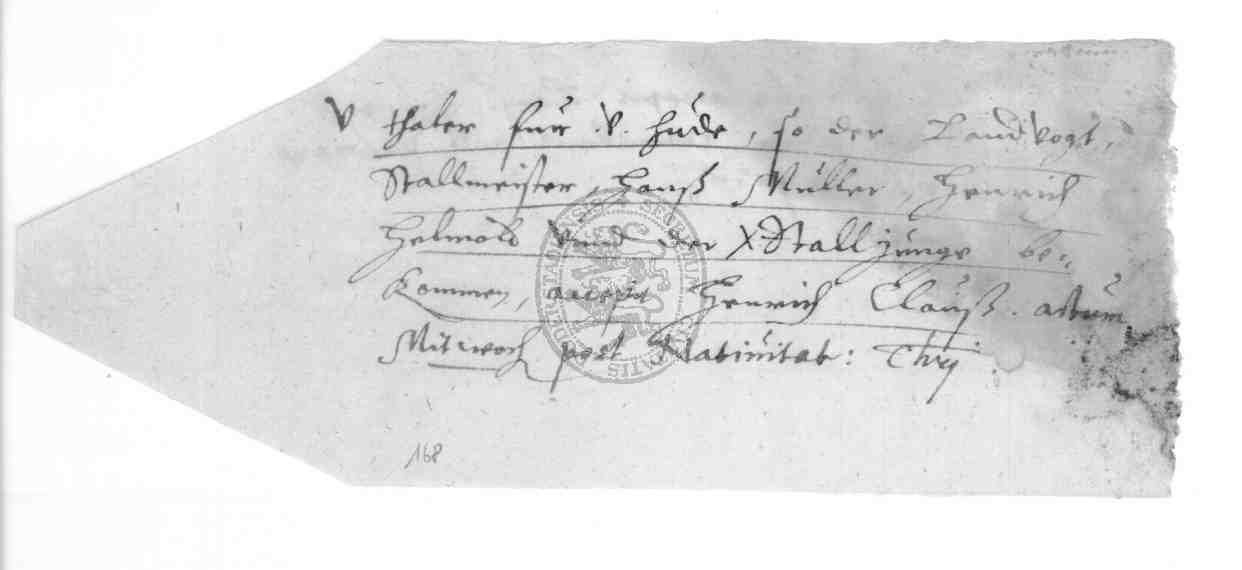 V thaler fur .V. hüde, so der Landvogt,
Stallmeister, Hanß Müller, Henrich
Helmold vnnd der X Stalljunge be-
kommen, accepit Henrich Clauß. actum
Mitwoch post Natiuitat: Chrj
168